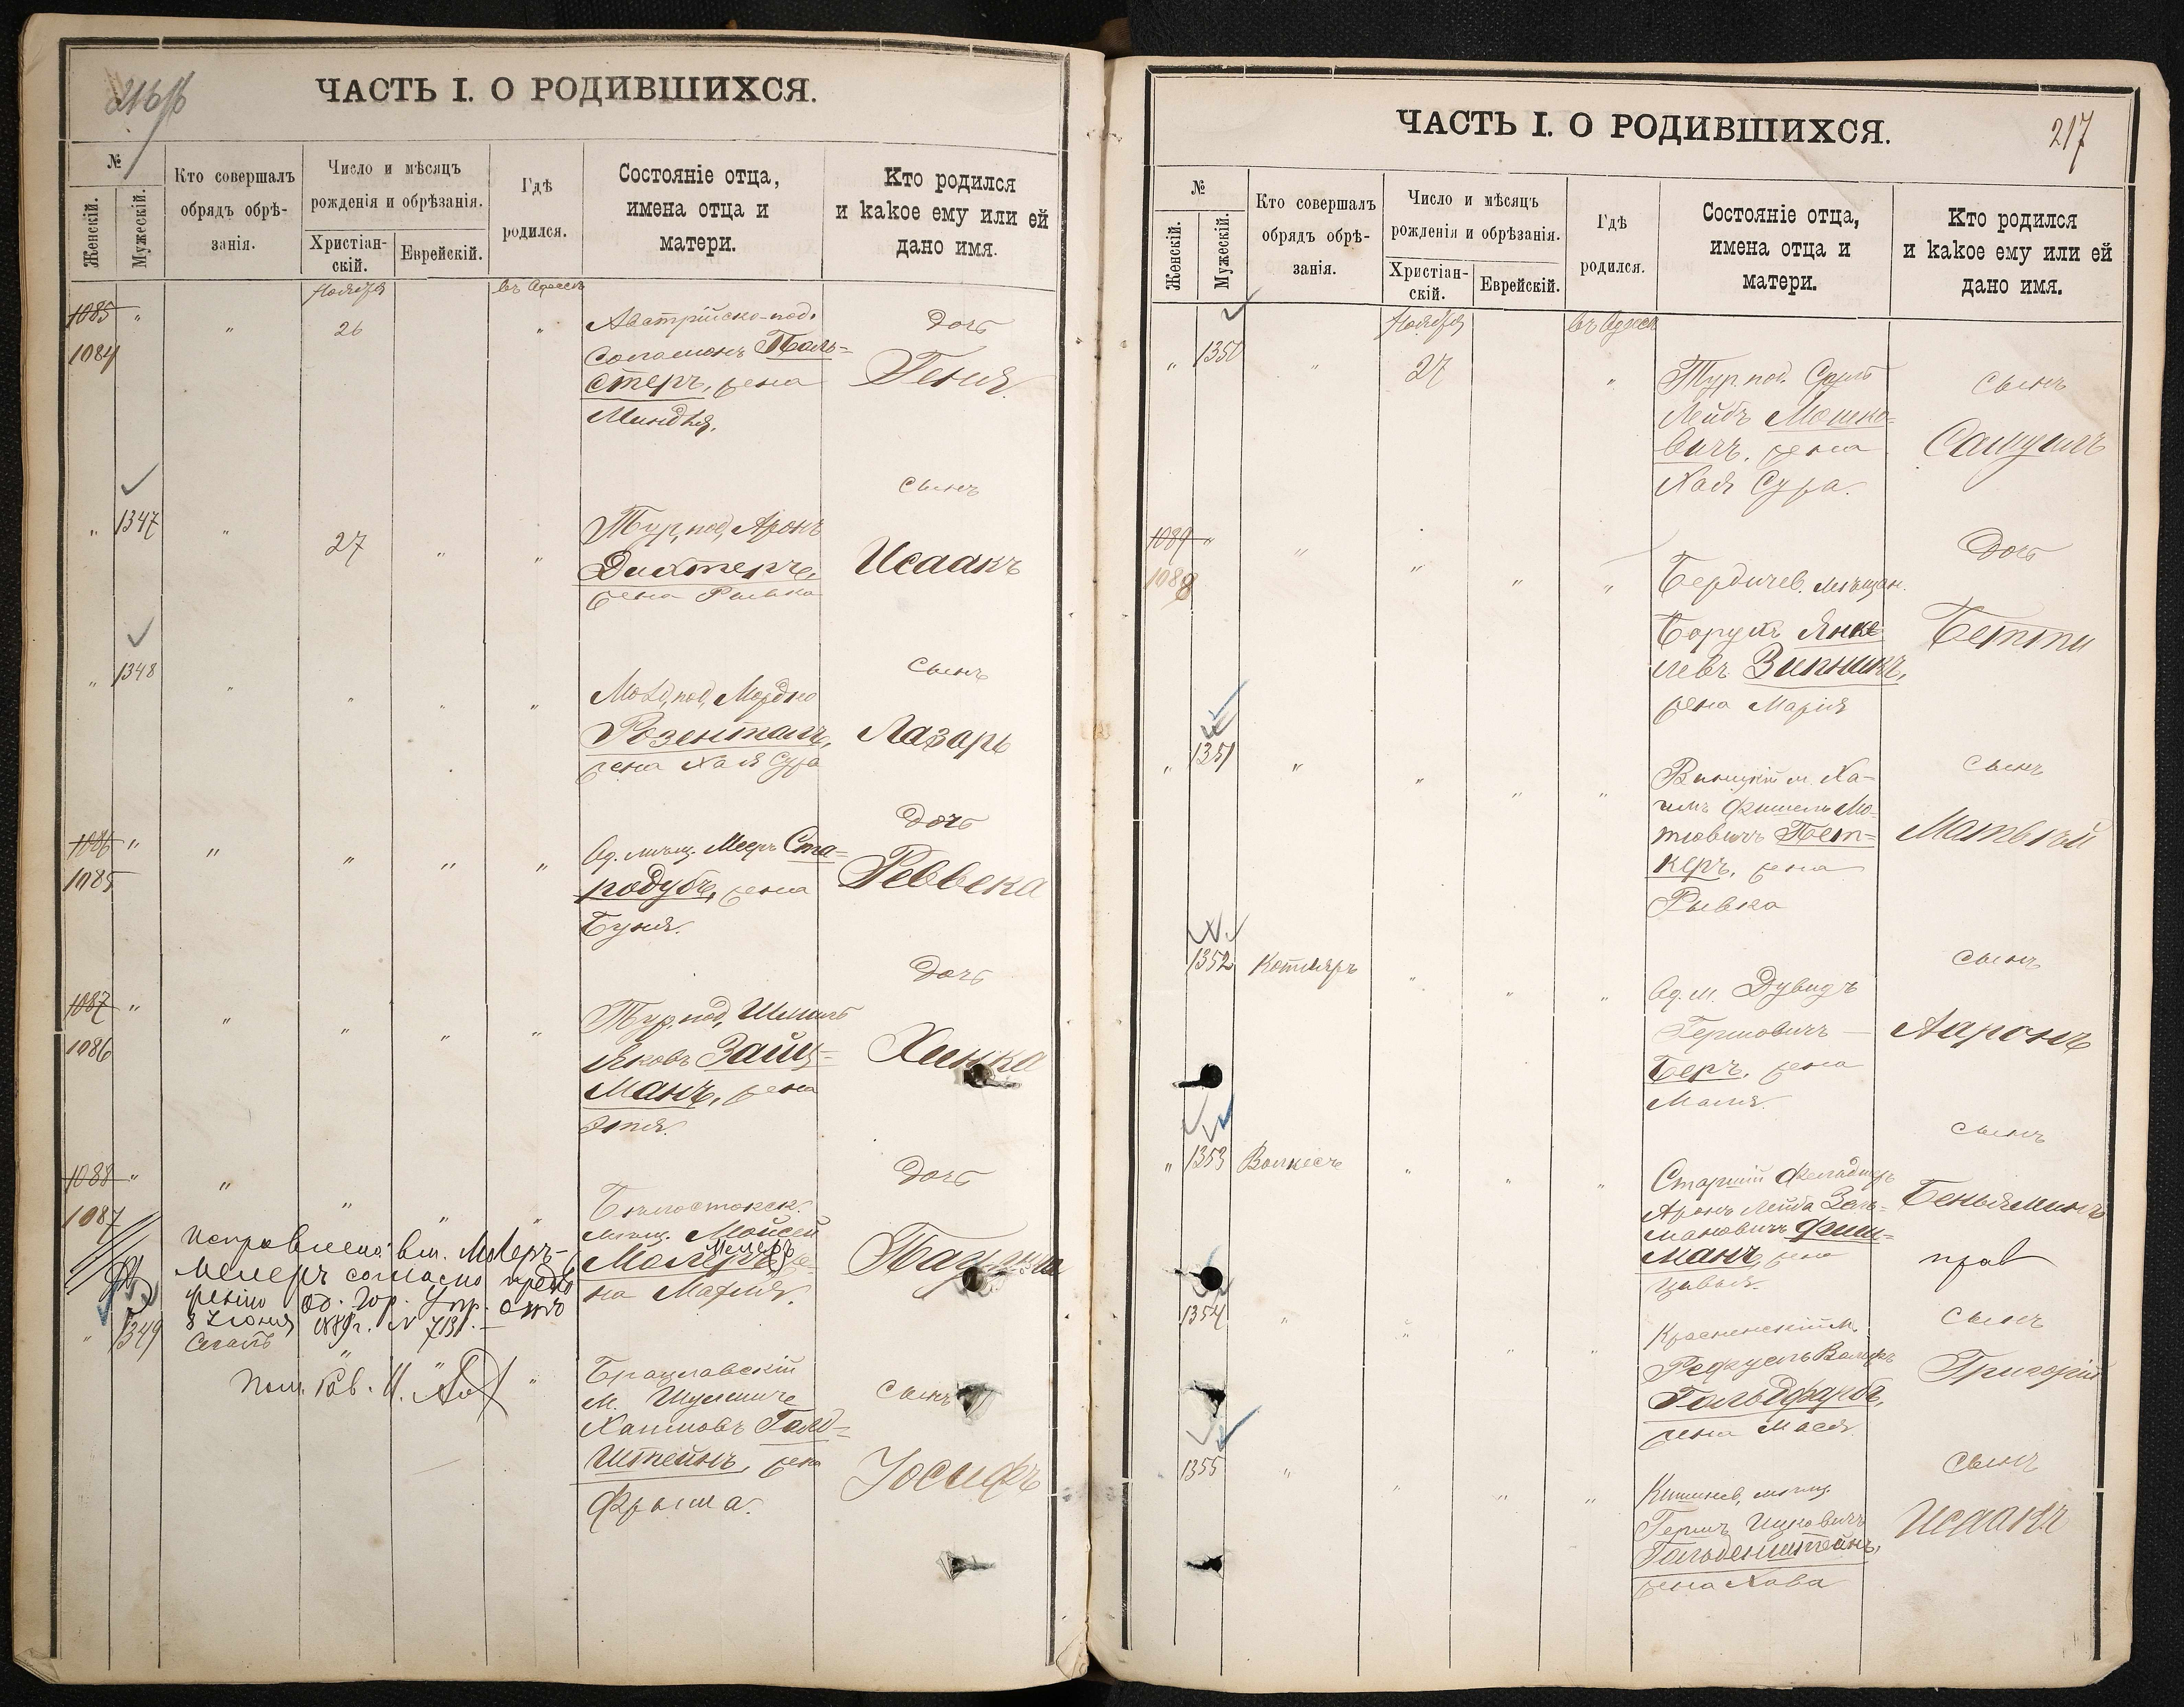 216
ЧАСТЬ I. О РОДИВШИХСЯ.
№
Женскій.
Мужескій.
Кто совершалъ
обрядъ обрѣ-
занія.
Число и мѣсяцъ
рожденія и обрѣзанія.
Христіан-
скій.
Еврейскій.
Гдѣ
родился.
Состояніе отца,
имена отца и
матери.
Кто родился
и какое ему или ей
дано имя.
Ноября
въ Одессѣ
1085 " " 26 "
1084
Австрійско-под.
Соломонъ Поль-
стеръ, жена
Миндля.
Дочь
Геня.
" 1347 " 27 " "
Тур. под. Аронъ
Дихтеръ,
жена Рывка
сынъ
Исаакъ
" 1348 " " " "
Молд. под. Мордко
Розенталь,
жена Хая Сура
сынъ
Лазарь
1086 " " " " "
1085
Од. мѣщ. Мееръ Ста-
родубъ, жена
Буня.
Дочь
Реввека
1087 " " " " "
1086
Тур. под. Шмиль
Яковъ Зайц-
манъ, жена
Этя.
Дочь
Хинка
1088 " " " " "
1087
Бѣлостокск.
мѣщ. Мойсей
Мелеръ
Молеръ, же-
на Махля.
Дочь
Исправлено: вм. Молеръ-
Мелеръ согласно предло
женію Од. Гор. Упр. отъ
8 Іюня 1889 г. №
" 1349 Сегаль " " "
Пом. Рав. И.
Брацлавскій
м. Шулимъ
Хаимовъ Голд-
штейнъ, жена
Фрыма.
сынъ
Іосифъ
217
ЧАСТЬ I. О РОДИВШИХСЯ.
№
Женскій.
Мужескій.
Кто совершалъ
обрядъ обрѣ-
занія.
Число и мѣсяцъ
рожденія и обрѣзанія.
Христіан-
скій.
Еврейскій.
Гдѣ
родился.
Состояніе отца,
имена отца и
матери.
Кто родился
и какое ему или ей
дано имя.
Ноября
въ Одессѣ
" 1350 " 27 "
Тур. под. Сруль
Лейбъ Мошко-
вичъ, жена
Хая Сура.
сынъ
Самуилъ
1089 " " " " "
1088
Бердичев. мѣщан.
Борухъ Янке
левъ Зипникъ,
жена Марія
Дочь
Бетти
" 1351 " " " "
Виницкій м. Ха-
имъ Фишель Мо-
тювичъ Пет-
керъ, жена
Рывка
сынъ
Матвѣй
1352 Котляръ " " "
Од. м. Дувидъ
Гершовичъ
Беръ, жена
Маля.
сынъ
Ааронъ
" 1353 " " "
Старшій Фельдшеръ
Аронъ Лейба Зель-
мановичъ Фиш-
манъ, жена
сынъ
Беньяминъ
прав
1354 " " " "
Красненскій м.
Рефуель Вольфъ
Гольдфарбъ,
жена Мася.
сынъ
Григорій
1355 " " " "
Кишинев. мѣщ.
Гершъ Ицковичъ
Гольденштейнъ,
жена Хава
сынъ
Исаакъ